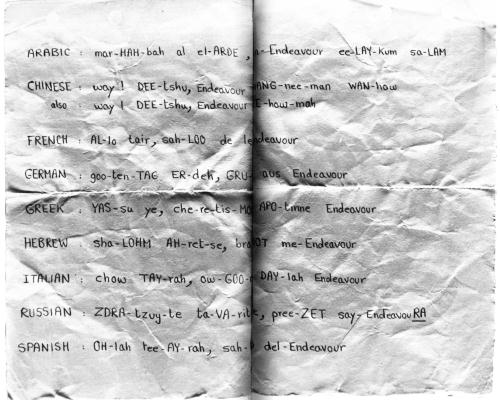 ARABIC : mar-HAH-bah al el-ARDE, Endeavour ee-LAY-kum sa-LAM
CHINESE : way! DEE-tshu, Endeavour ANG-nee-man WAN-how
also : way! DEE-tshu, Endeavour E-how-mah
FRENCH : AL-lo tair, sah-LOO de Endeavour
GERMAN : goo-ten-TAG ER-deh, GRU- aus Endeavour
GREEK : YAS-su ye, che-re-tis-MO APO-tinne Endeavour
HEBREW : sha-LOHM AH-ret-se, me-Endeavour
ITALIAN : chow TAY-rah, ow-GOO- DAY-lah Endeavour
RUSSIAN : ZDRA-tzuy-te ta-VA-rit, pree-ZET say-EndeavouRA
SPANISH : OH-lah tee-AY-rah, sah- del-Endeavour